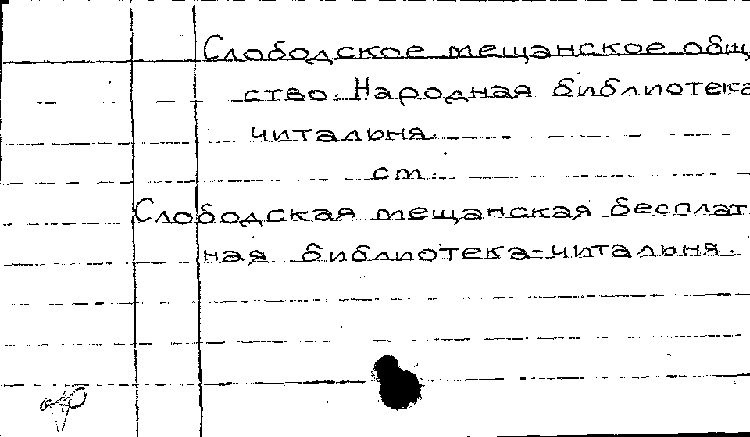 Слободское мещанское общ
ство. Народная библиотека
читальня.
ст.
Слободская мещанская бесплат
ная библиотека-читальня.